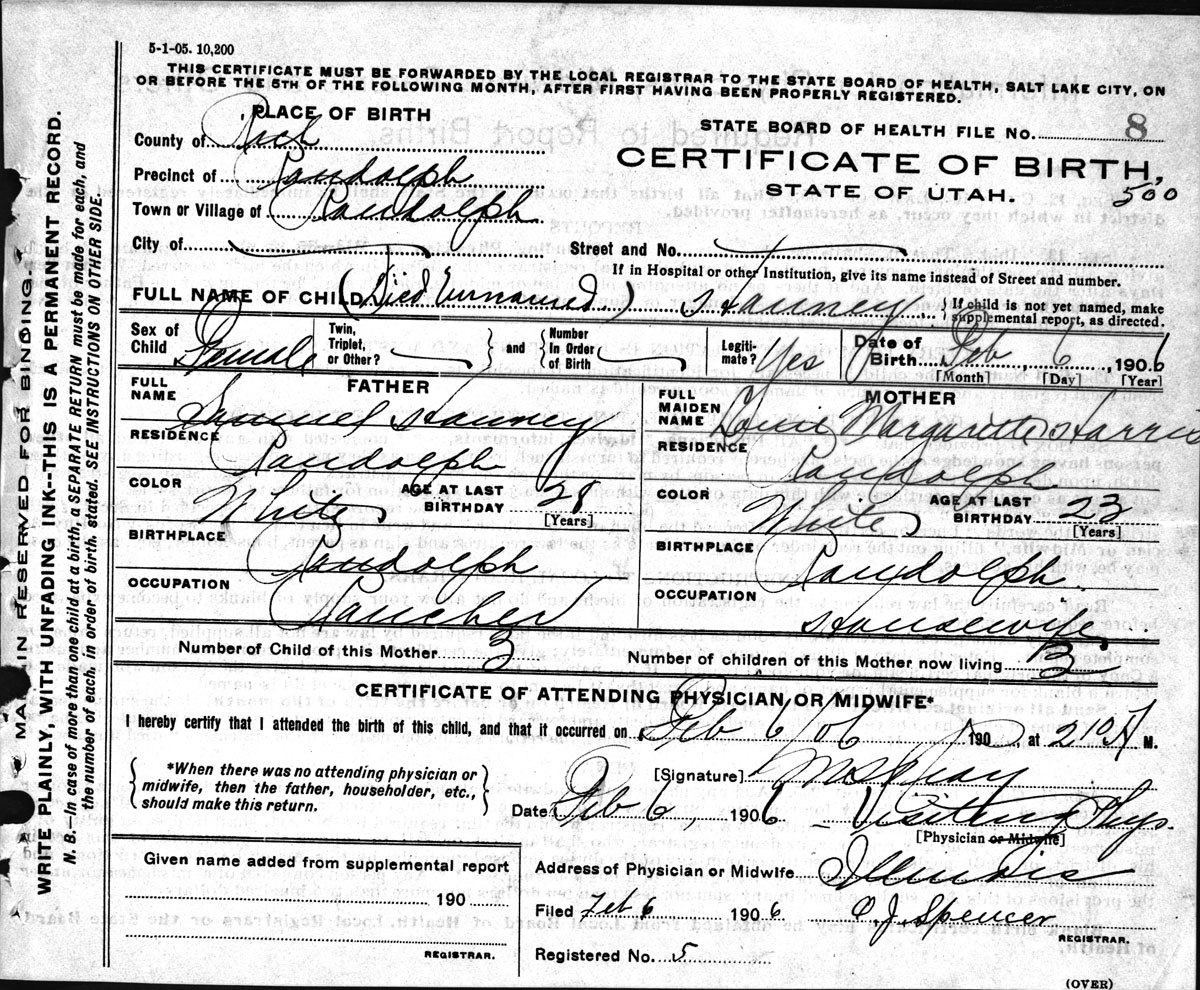 5-1-05. 10,200
THIS CERTIFICATE MUST BE FORWARDED BY THE LOCAL REGISTRAR TO THE STATE BOARD OF HEALTH, SALT LAKE CITY, ON
OR BEFORE THE 5TH OF THE FOLLOWING MONTH, AFTER FIRST HAVING BEEN PROPERLY REGISTERED.
PLACE OF BIRTH
STATE BOARD OF HEALTH FILE No. 8
County of Rich
CERTIFICATE OF BIRTH,
Precinct of Randolph
STATE OF UTAH. 500
Town or Village of Randolph
City of
Street and No.
If in Hospital or other Institution, give its name instead of Street and number.
FULL NAME OF CHILD (Died Unnamed) Hanney { If child is not yet named, make supplemental report, as directed.
Sex of Child Female
Twin, Triplet, or Other? } and { Number In Order of Birth
Legiti-mate? Yes
Date of Birth Feb 6, 1906
[Month] [Day] [Year]
FATHER
FULL NAME Samuel Hanney
RESIDENCE Randolph
COLOR White AGE AT LAST BIRTHDAY 28 [Years]
BIRTHPLACE Randolph
OCCUPATION Rancher
MOTHER
FULL MAIDEN NAME Margarite Harris
RESIDENCE Randolph
COLOR White AGE AT LAST BIRTHDAY 23 [Years]
BIRTHPLACE Randolph
OCCUPATION Housewife
Number of Child of this Mother 3
Number of children of this Mother now living
CERTIFICATE OF ATTENDING PHYSICIAN OR MIDWIFE*
I hereby certify that I attended the birth of this child, and that it occurred on Feb 6/06 190 , at 2 10 A M.
{ *When there was no attending physician or midwife, then the father, householder, etc., should make this return. }
[Signature]
Date Feb 6, 1906 – Visiting Phys.
[Physician or Midwife]
Given name added from supplemental report
190
REGISTRAR.
Address of Physician or Midwife Illinois
Filed Feb 6 1906 O. J. Spencer
REGISTRAR.
Registered No. 5
(OVER)
MARGIN RESERVED FOR BINDING
WRITE PLAINLY, WITH UNFADING INK--THIS IS A PERMANENT RECORD.
N. B.—In case of more than one child at a birth, a SEPARATE RETURN must be made for each, and
the number of each, in order of birth, stated. SEE INSTRUCTIONS ON OTHER SIDE.